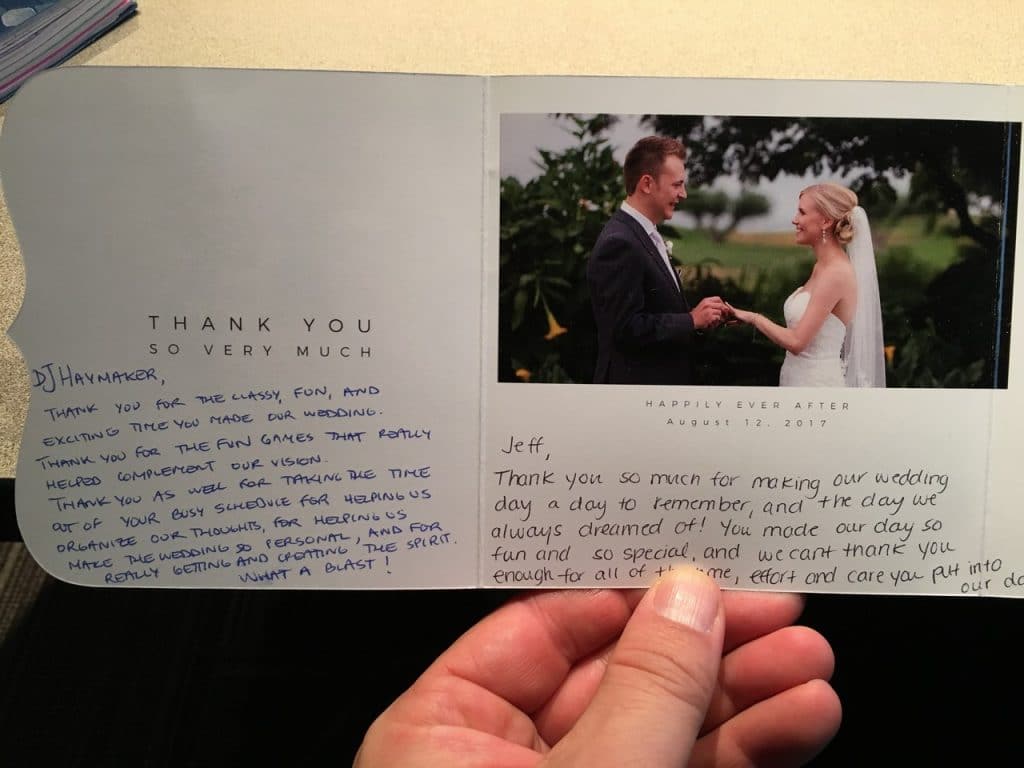 THANK YOU
SO VERY MUCH
DJ HAYMAKER,
THANK YOU FOR THE CLASSY, FUN, AND
EXCITING TIME YOU MADE OUR WEDDING.
THANK YOU FOR THE FUN GAMES THAT REALLY
HELPED COMPLEMENT OUR VISION.
THANK YOU AS WELL FOR TAKING THE TIME
OUT OF YOUR BUSY SCHEDULE FOR HELPING US
ORGANIZE OUR THOUGHTS, FOR HELPING US
MAKE THE WEDDING SO PERSONAL, AND FOR
REALLY GETTING AND CREATING THE SPIRIT.
WHAT A BLAST!
HAPPILY EVER AFTER
August 12, 2017
Jeff,
Thank you so much for making our wedding
day a day to remember, and the day we
always dreamed of! You made our day so
fun and so special, and we cant thank you
enough for all of effort and care you put into
our